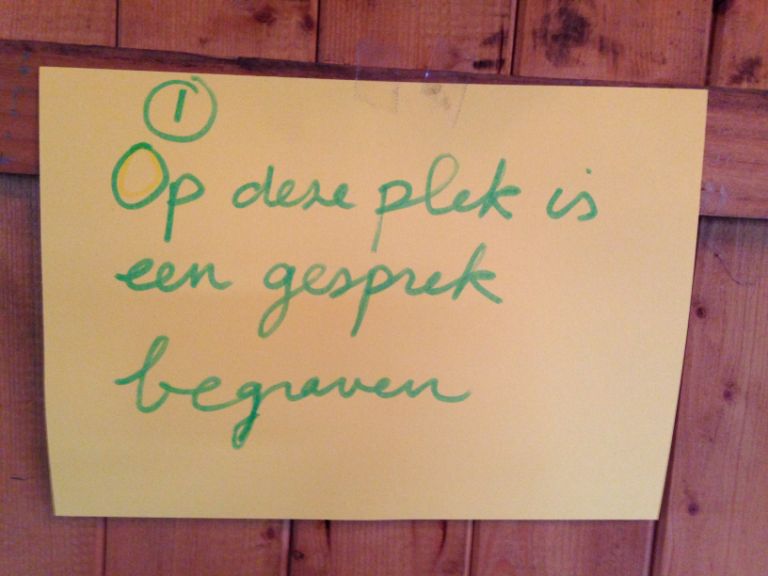 1
Op deze plek is
een gesprek
begraven